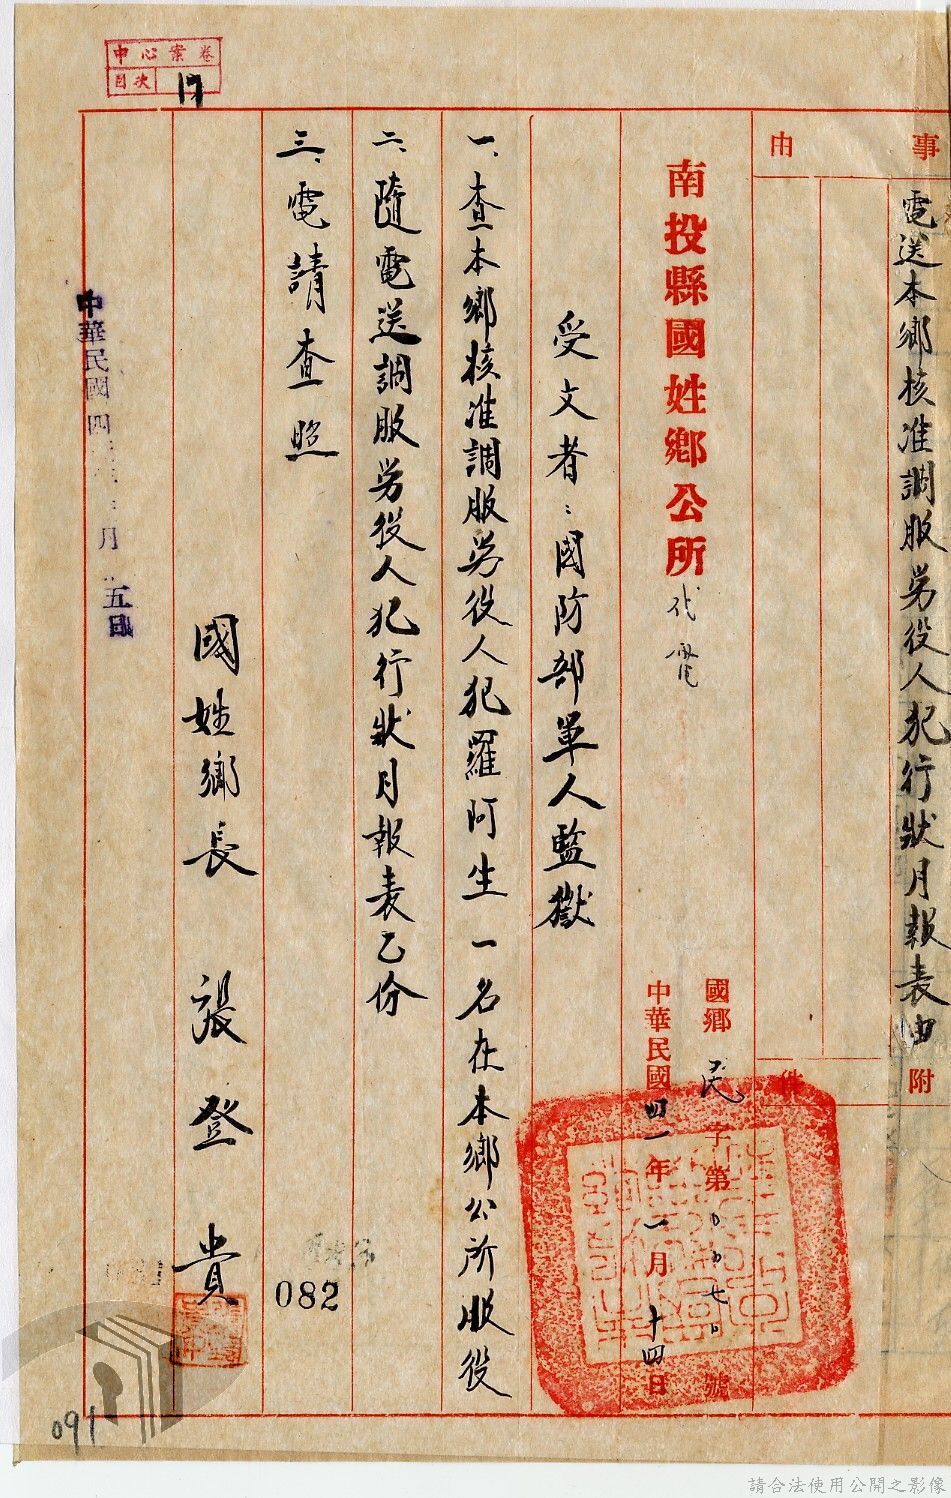 中心案卷
目次 17
事由
電送本鄉核准調服勞役人犯行狀月報表由
附件
南投縣國姓鄉公所代電
國鄉民字第 號
中華民國四一年一月十四日
受文者：國防部軍人監獄
一、查本鄉核准調服勞役人犯羅阿生一名在本鄉公所服役
二、隨電送調服勞役人犯行狀月報表乙份
三、電請查照
國姓鄉長 張登貴
中華民國四 月 五日
082
091
請合法使用公開之影像